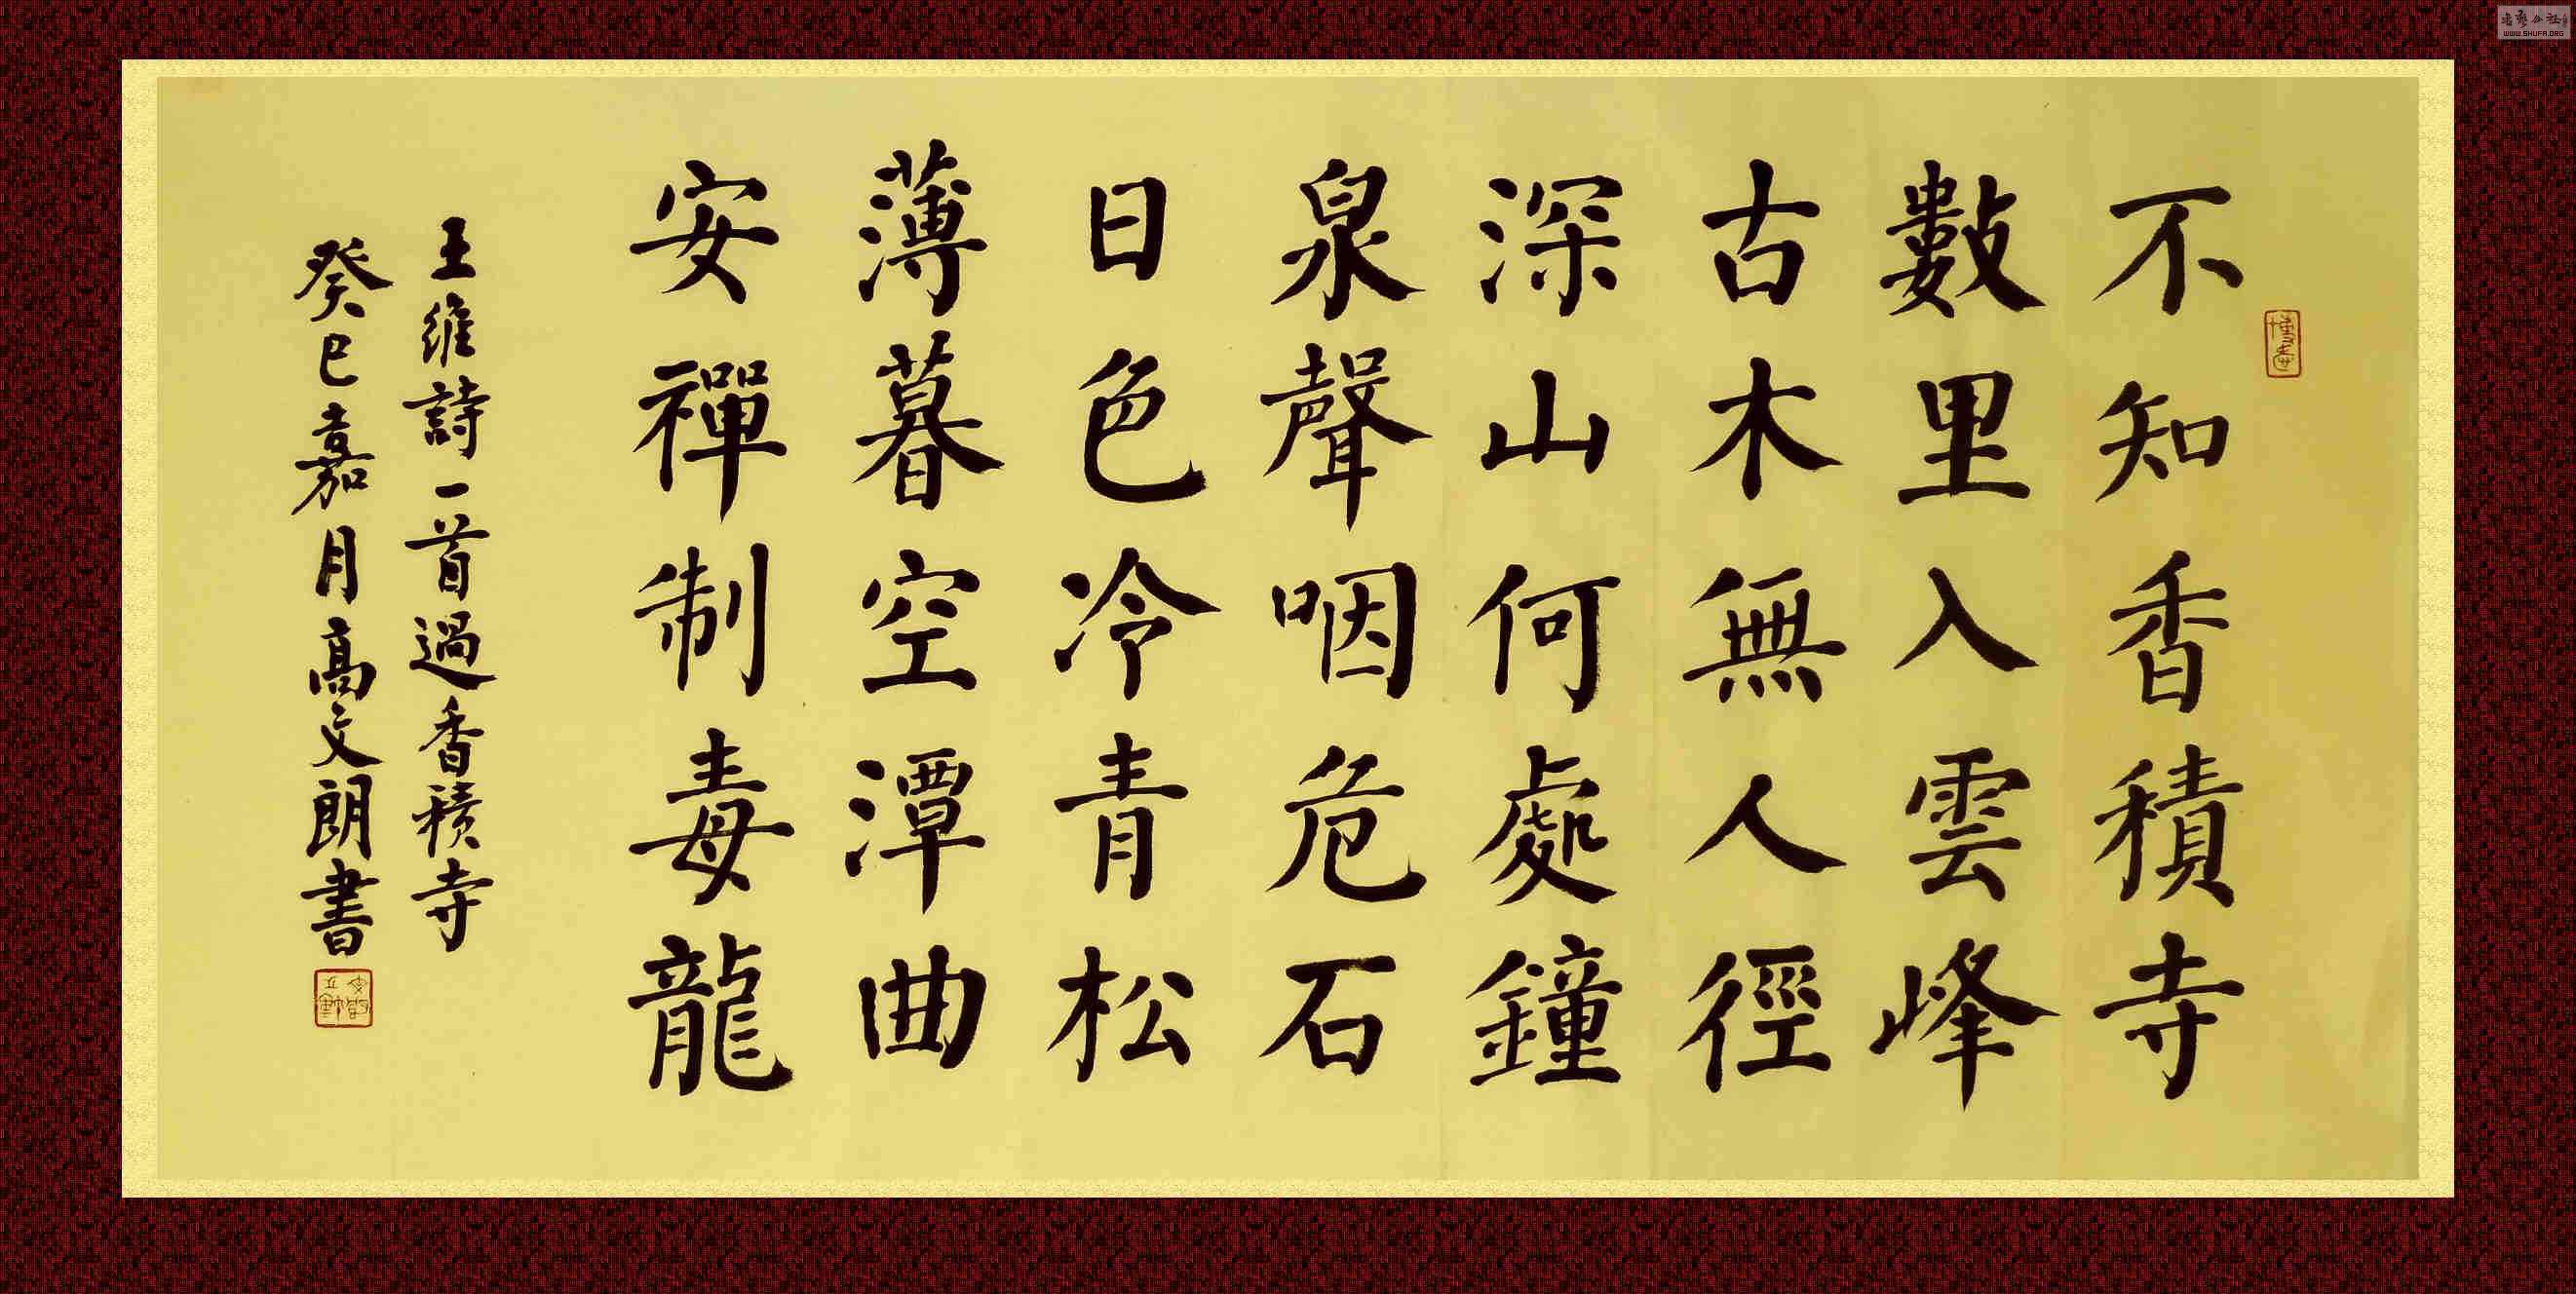 不知香積寺
數里入雲峰
古木無人徑
深山何處鐘
泉聲咽危石
日色冷青松
薄暮空潭曲
安禪制毒龍
王維詩一首過香積寺
癸巳嘉月高文朗書
WWW.SHUFA.ORG